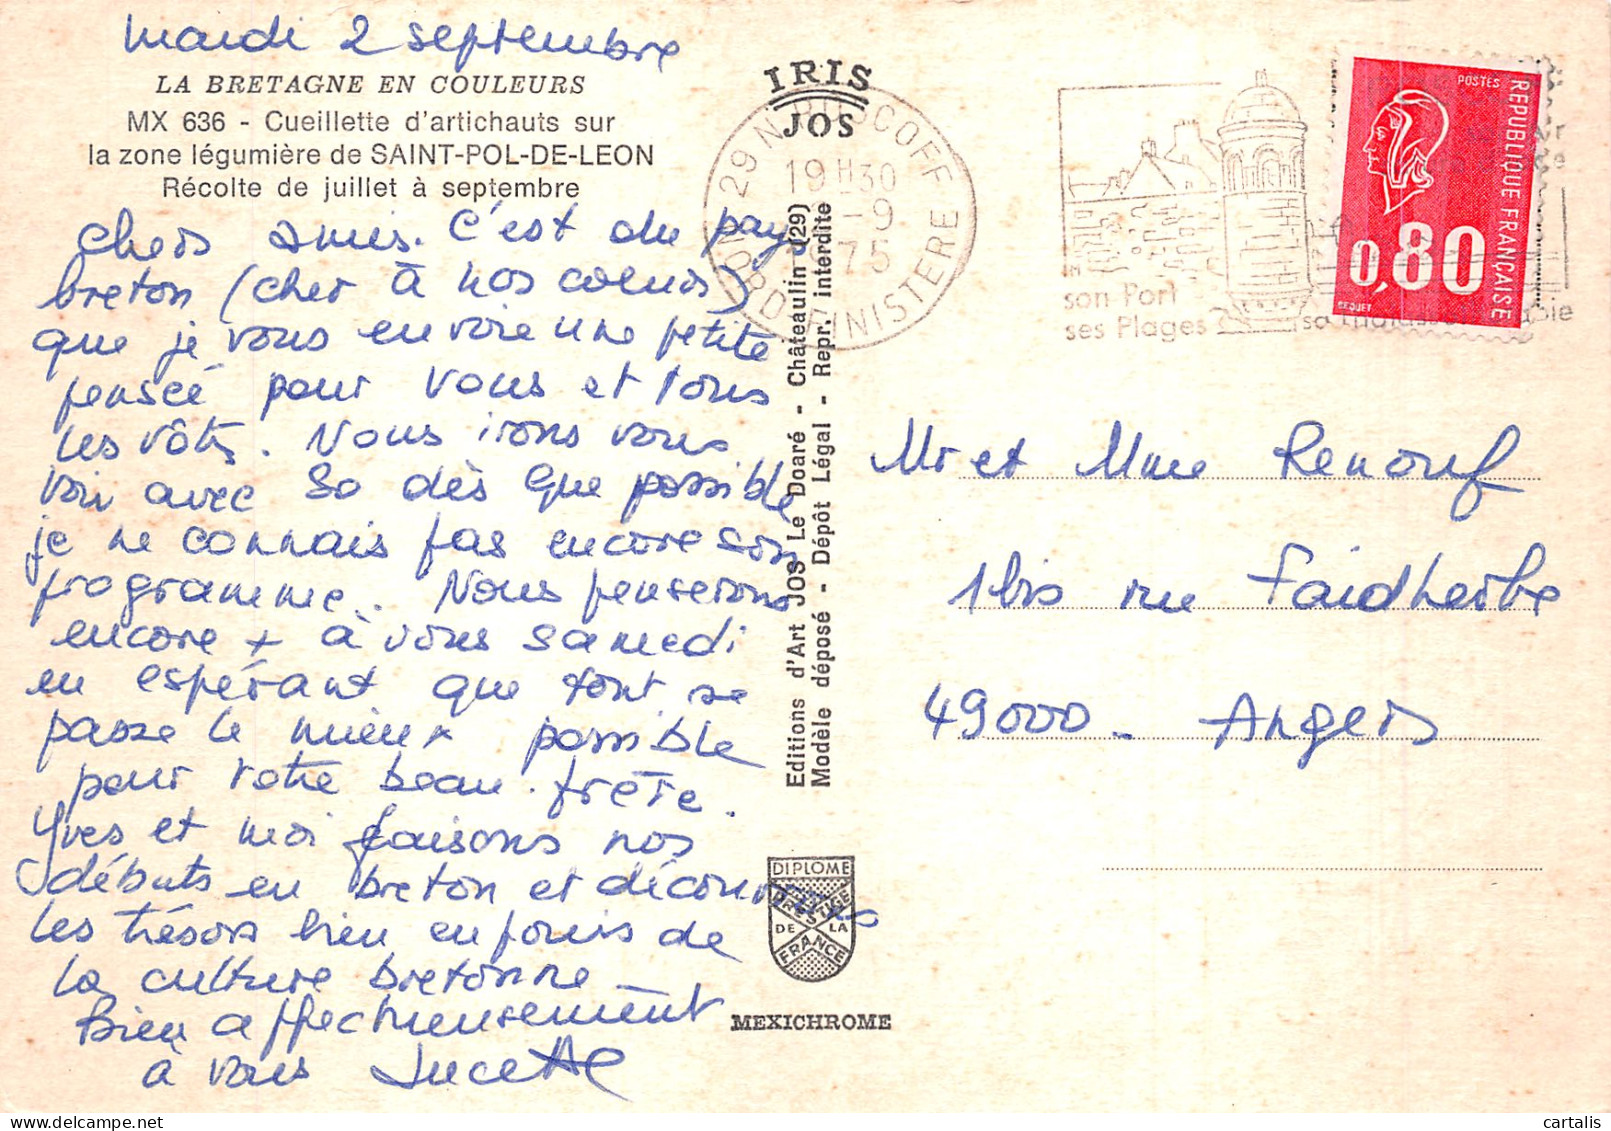 mardi 2 septembre
LA BRETAGNE EN COULEURS
MX 636 - Cueillette d'artichauts sur
la zone légumière de SAINT-POL-DE-LEON
Récolte de juillet à septembre
chers amis. C'est du pays
breton (cher à nos coeurs)
que je vous envoie une petite
pensée pour vous et tous
les vôts. Nous irons vous
voir avec So dès que possible
je ne connais pas encore son
programme. Nous penserons
encore + à vous samedi
en espérant que tout se
passe le mieux possible
pour votre beau-frère.
Yves et moi faisons nos
débuts en breton et découvrons
les trésors bien enfouis de
la culture bretonne
Bien affectueusement
à vous Lucette
IRIS
JOS
29 N. ROSCOFF
19H30
-9
75
NORD FINISTERE
Editions d'Art JOS Le Doaré - Châteaulin (29)
Modèle déposé - Dépôt Légal - Repr. interdite
DIPLOME
PRESTIGE
DE LA
FRANCE
MEXICHROME
son Port
ses Plages
POSTES
REPUBLIQUE FRANÇAISE
0,80
BEQUET
Mr et Mme Renouf
1 bis rue Faidherbe
49000 - Angers
© cartalis
delcampe.net